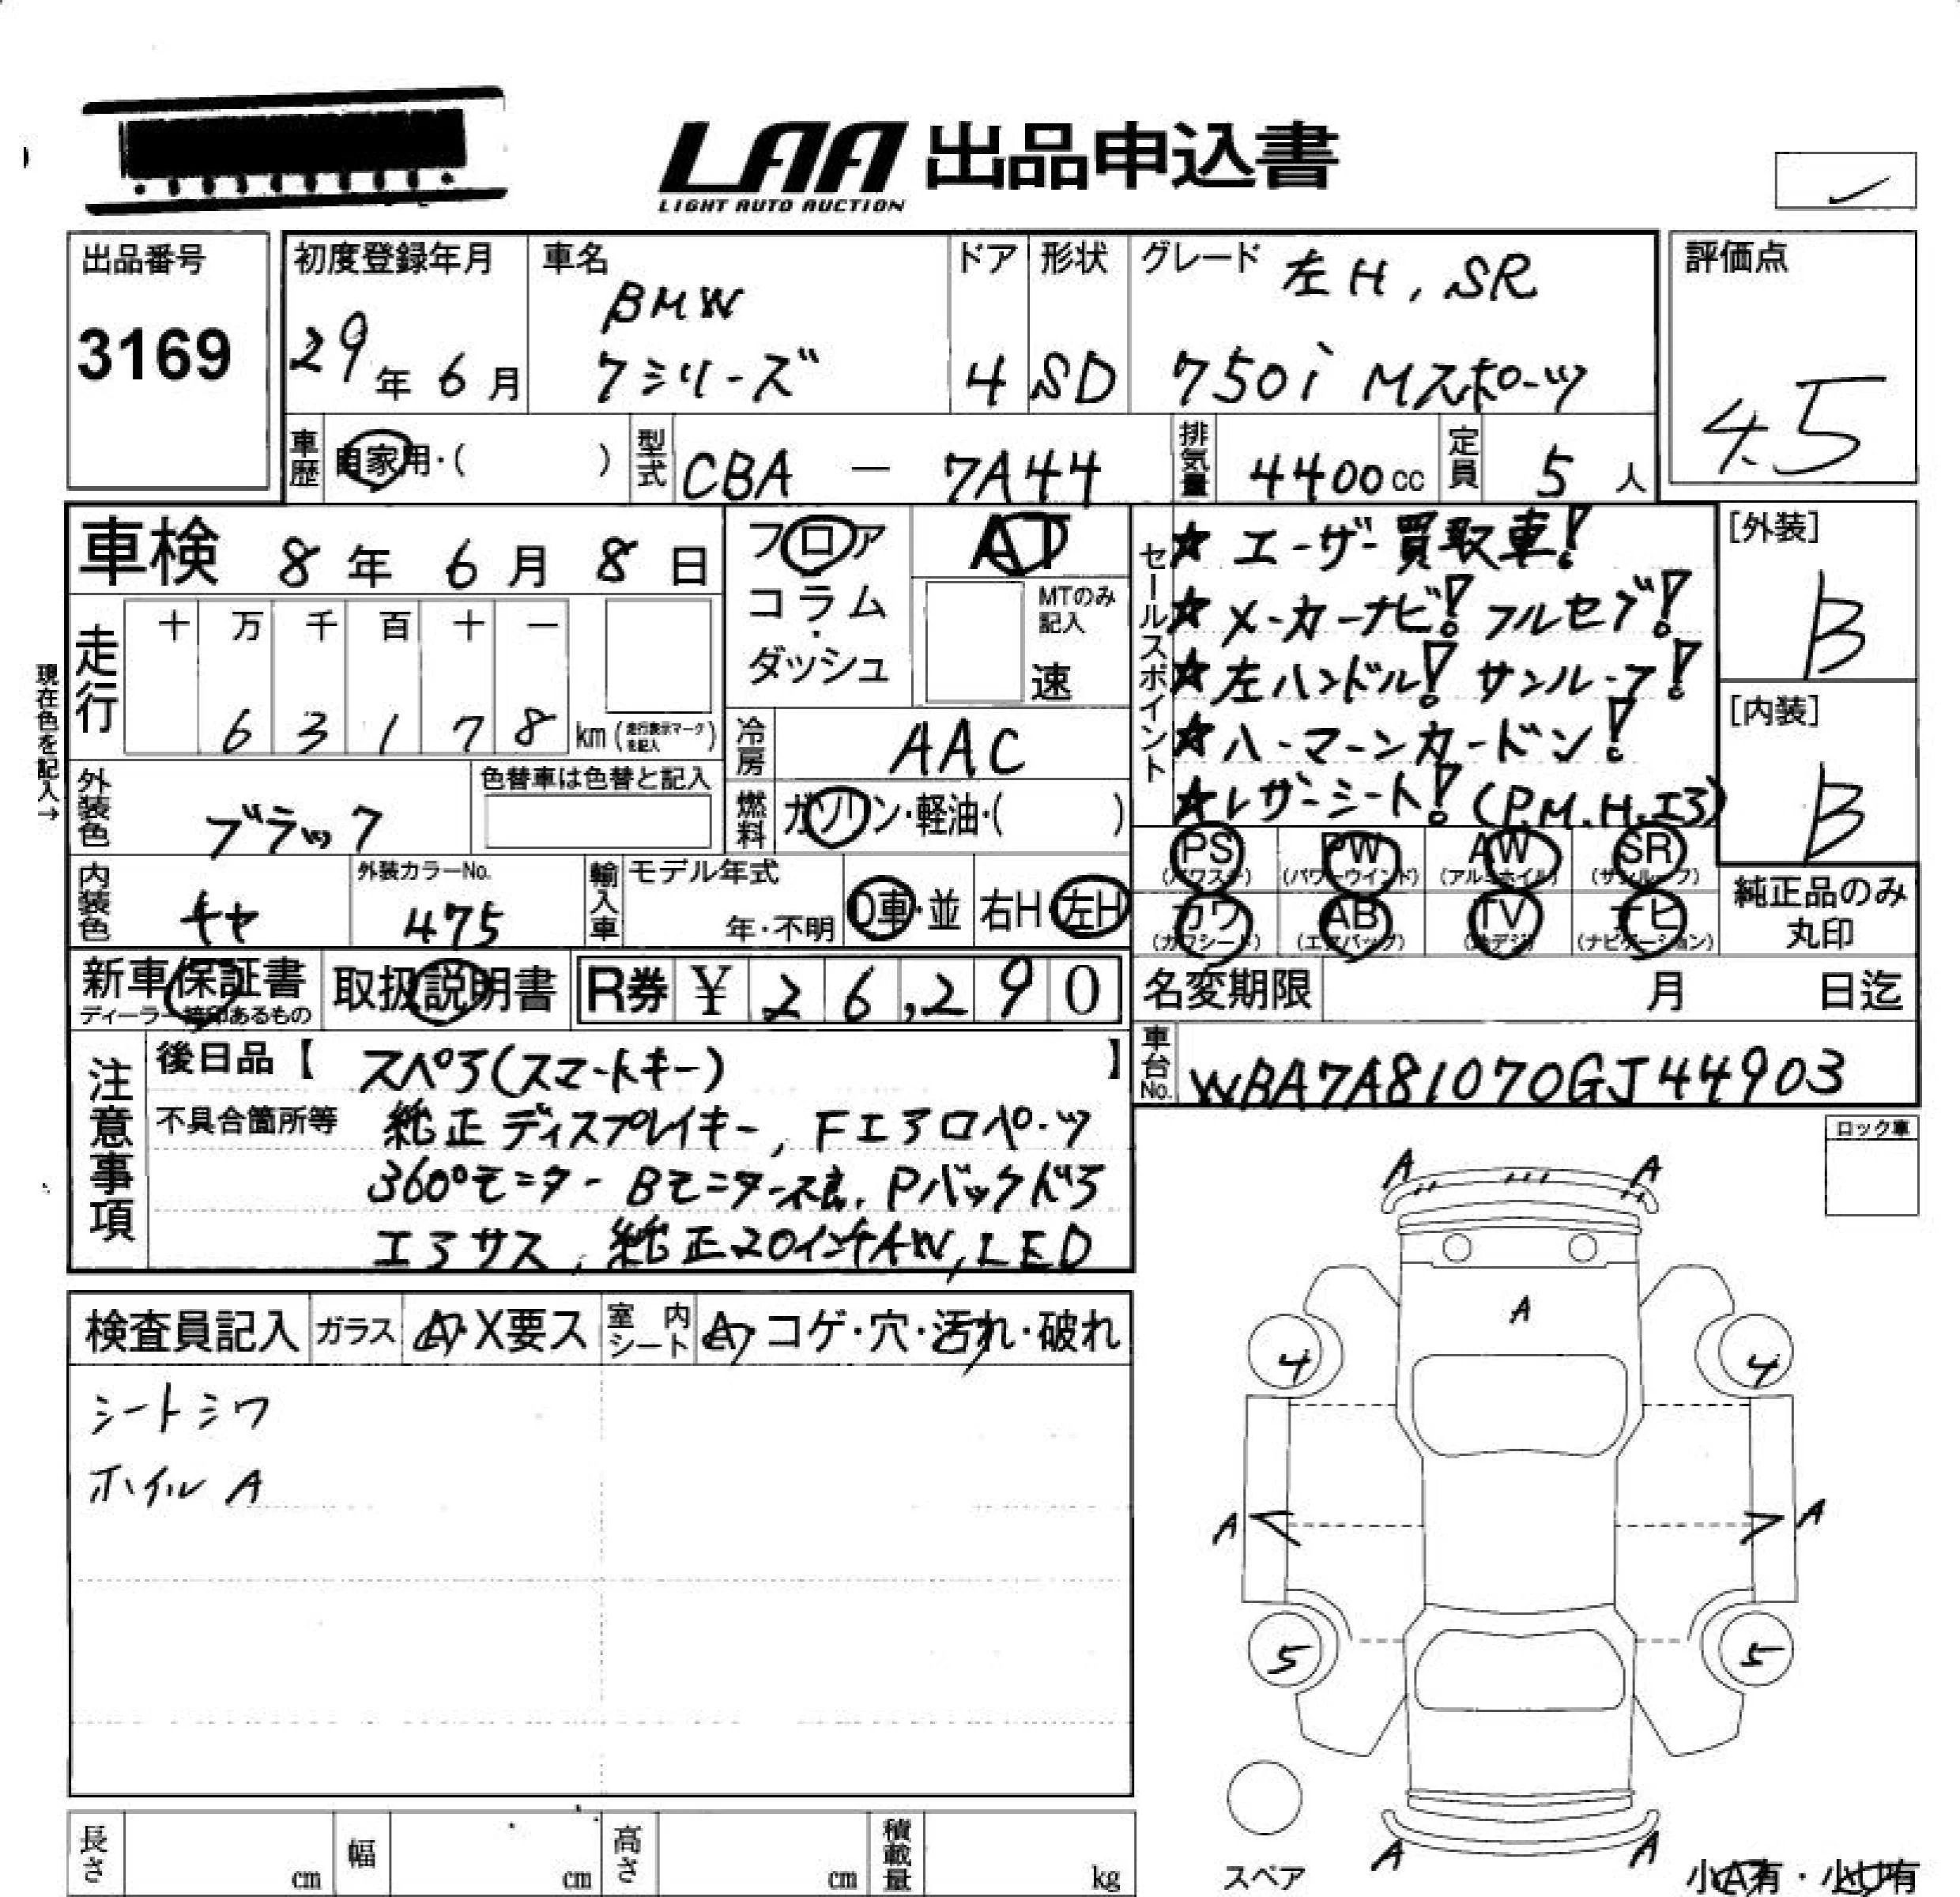 LAA 出品申込書
LIGHT AUTO AUCTION
出品番号
3169
初度登録年月
29年 6月
車名
BMW
7シリーズ
ドア
4
形状
SD
グレード 左H, SR
750i Mスポーツ
評価点
4.5
車歴 自家用・( )
型式 CBA - 7A44
排気量 4400cc
定員 5人
車検 8年 6月 8日
走行
十 万 千 百 十 一
6 3 1 7 8 km (走行表示マークを記入)
現在色を記入→
外装色 ブラック
色替車は色替と記入
内装色 キャ
外装カラーNo.
475
フロア
コラム
・
ダッシュ
AT
MTのみ
記入
速
冷房 AAC
燃料 ガソリン・軽油・( )
輸入車 モデル年式
年・不明
D車・並
右H 左H
セールスポイント
★ユーザー買取車!
★メーカーナビ! フルセブ!
★左ハンドル! サンルーフ!
★ハーマーンカードン!
★レザーシート! (P.M.H.エア)
[外装]
B
[内装]
B
PS PW AW SR
(パワステ) (パワーウインド) (アルミホイル) (サンルーフ)
カワ AB TV ナビ
(カワシート) (エアバック) (地デジ) (ナビゲーション)
純正品のみ
丸印
新車保証書
ディーラー捺印あるもの
取扱説明書
R券 ¥ 26,290
名変期限 月 日迄
車台No. WBA7A81070GJ44903
注意事項
後日品【 スペア(スマートキー) 】
不具合箇所等 純正ディスプレイキー, Fエアロパーツ
360°モニター Bモニター Pバックドア
エアサス, 純正20インチAW, LED
ロック車
検査員記入
ガラス A・X要ス
室内シート A・コゲ・穴・汚れ・破れ
シートシワ
ホイル A
A A
A
4 4
A A
5 5
A A
スペア
小A有・小U有
長さ cm
幅 cm
高さ cm
積載量 kg